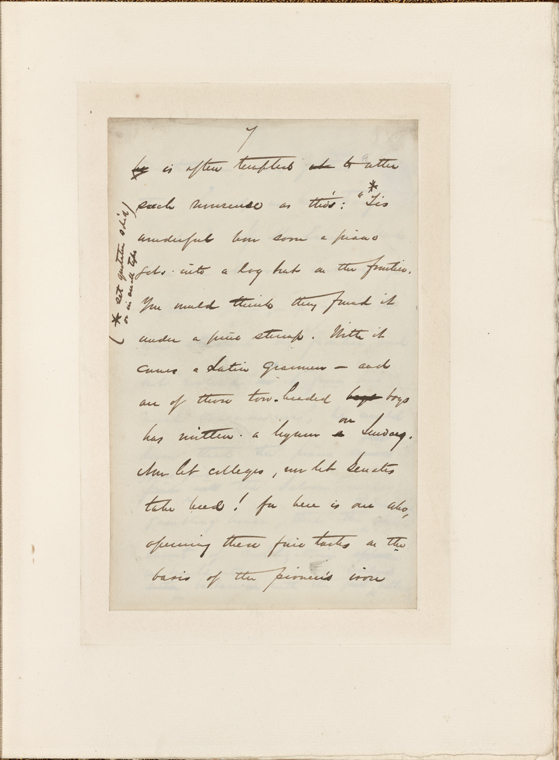 7
is often tempted to utter
such nonsense as this: "*Tis
wonderful how soon a piano
gets into a log hut on the frontier.
You would think they found it
under a pine stump. With it
comes a Latin Grammar — and
one of those tow-headed boys
has written a hymn on Sunday.
Now let colleges, now let Senates
take heed! for here is one who,
opening these fine tastes on the
basis of the pioneer's iron
(* set quotation solid
or in small type)